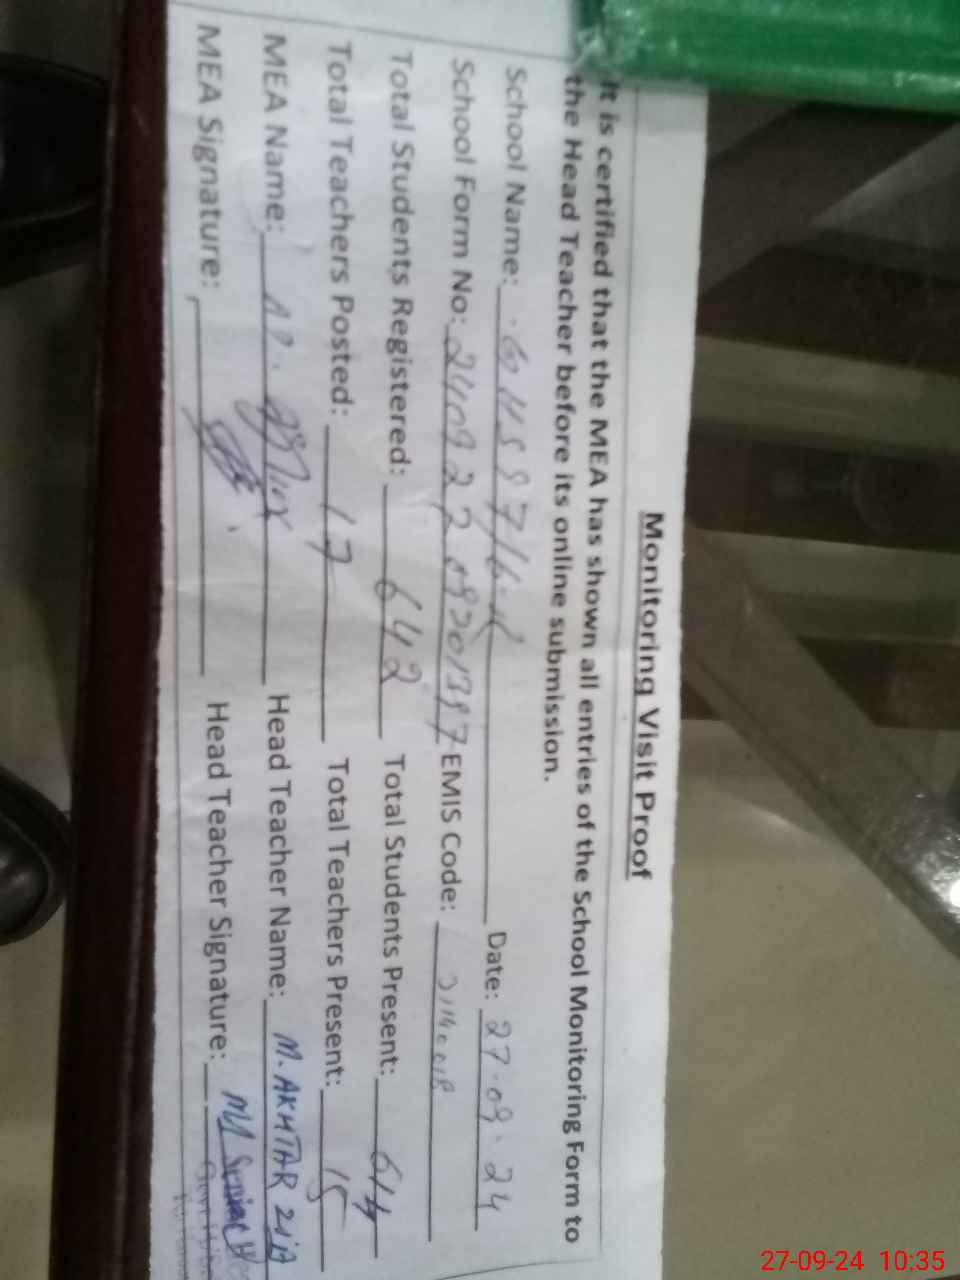 Monitoring Visit Proof
It is certified that the MEA has shown all entries of the School Monitoring Form to
the Head Teacher before its online submission.
School Name: GHSS 7/6-R Date: 27-09-24
School Form No: EMIS Code:
Total Students Registered: 642 Total Students Present: 614
Total Teachers Posted: 17 Total Teachers Present: 15
MEA Name: Head Teacher Name: M. AKHTAR
MEA Signature: Head Teacher Signature:
27-09-24 10:35